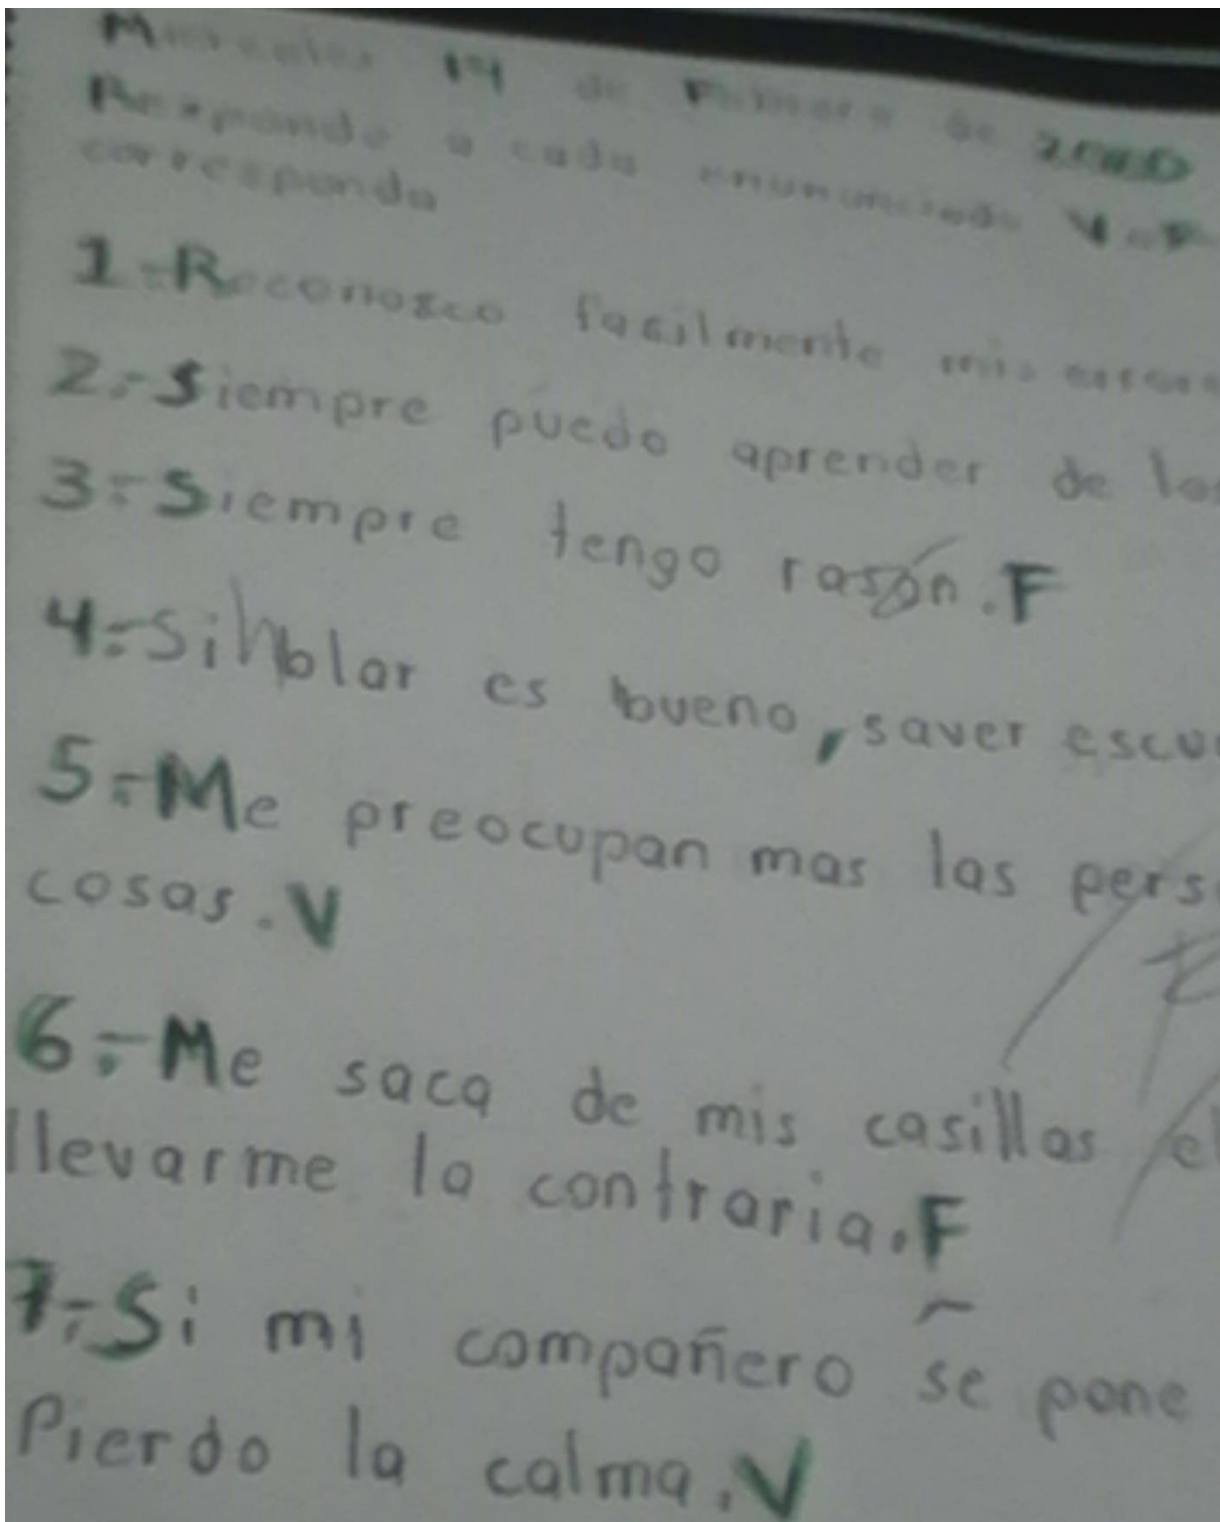 Miercoles 19 de Febrero de
Responde a cada enununciado V o F
corresponda
1.-Reconosco facilmente mis errores
2.-Siempre puedo aprender de los
3.-Siempre tengo rasón.F
4.-Si hblar es bueno, saver escu
5.-Me preocupan mas las pers
cosas.V
6.-Me saca de mis casillas el
llevarme la contraria.F
7.-Si mi compañero se pone
Pierdo la calma.V